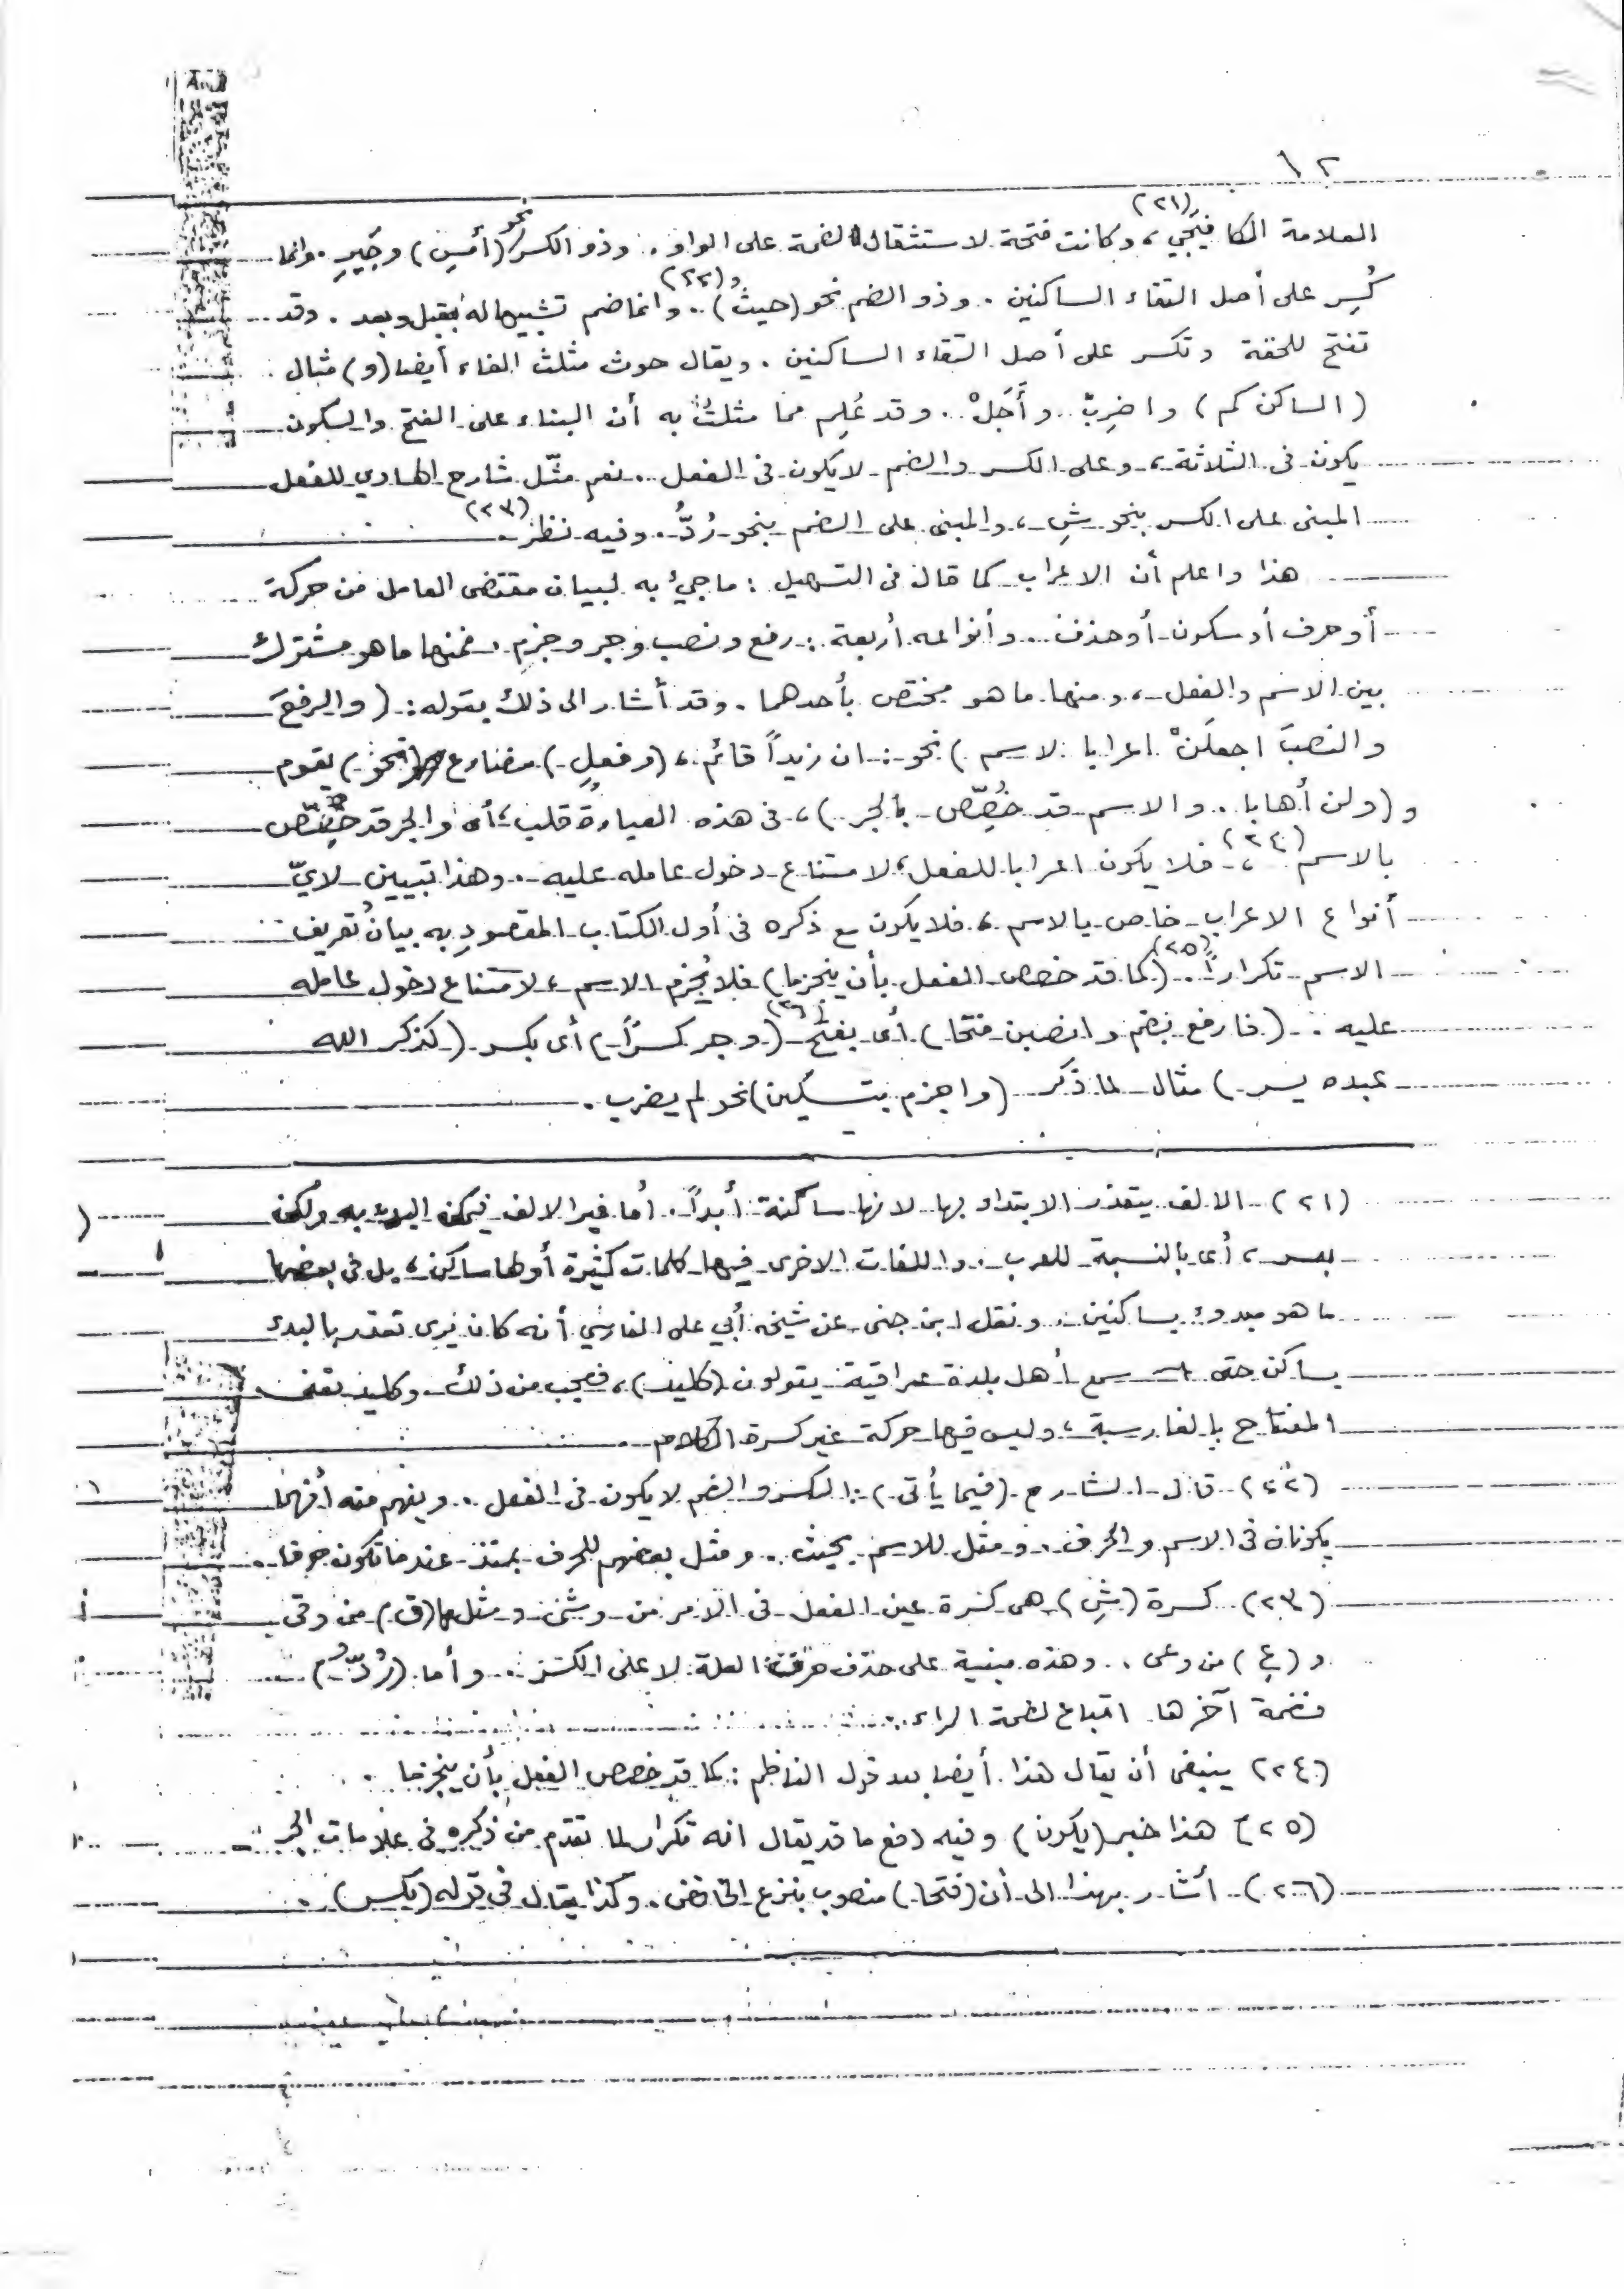 ١٢
العلامة الكافيجي (٢١)، وكانت فتحة لاستثقال الضمة على الواو . وذو الكسر نحو (أمسِ) وجَيرِ . وانما
كُسِر على أصل التقاء الساكنين . وذو الضم نحو (حيثُ) (٢٢) . وانما ضم تشبيها له بقبل وبعد . وقد
تفتح للخفة وتكسر على أصل التقاء الساكنين . ويقال حوث مثلث الفاء أيضا (و) مثال
(الساكن كم) واضرِبْ . وأَجَلْ . وقد عُلِم مما مثلتُ به أن البناء على الفتح والسكون
يكون فى الثلاثة ، وعلى الكسر والضم لا يكون فى الفعل . نعم مثّل شارح الهادي للفعل
المبنى على الكسر بنحو شِ ، والمبنى على الضم بنحو رُدُّ . وفيه نظر (٢٣) .
هذا واعلم أن الاعراب كما قال فى التسهيل : ما جيء به لبيان مقتضى العامل من حركة
أو حرف أو سكون أو حذف . وأنواعه أربعة : رفع ونصب وجر وجزم . فمنها ما هو مشترك
بين الاسم والفعل ، ومنها ما هو مختص بأحدهما . وقد أشار الى ذلك بقوله : (والرفعَ
والنصبَ اجعلَنْ اعرابا لاسم) نحو : ان زيداً قائم ، (وفعلٍ) مضارع (نحو) يقوم
و (ولن أهابا . والاسم قد خُصِّص بالجر) ، فى هذه العبارة قلب ، أى والجر قد خُصِّص
بالاسم (٢٤) ، فلا يكون اعرابا للفعل ، لامتناع دخول عامله عليه . وهذا تبيين لايّ
أنواع الاعراب خاص بالاسم ، فلا يكون مع ذكره فى أول الكتاب المقصودِ به بيانُ تعريف
الاسم تكراراً (٢٥) . (كما قد خصص الفعل بأن ينجزما) فلا يُجزم الاسم ، لامتناع دخول عامله
عليه . (فارفع بضم وانصبن فتحا) أى بفتح (٢٦) (وجر كسراً) أى بكسر (كذكر الله
عبده يسر) مثال لما ذكر (واجزم بتسكين) نحو لم يضرب .
(٢١) الالف يتعذر الابتداء بها لانها ساكنة أبداً . أما غير الالف فيمكن البدء به ولكن
بعسر ، أى بالنسبة للعرب . واللغات الاخرى فيها كلمات كثيرة أولها ساكن ، بل فى بعضها
ما هو مبدوء بساكنين . ونقل ابن جنى عن شيخه أبي على الفارسي أنه كان يرى تعذر البدء
بساكن حتى سمع أهل بلدة عراقية يقولون (كليد) ، فعجب من ذلك . وكليد تعنى
المفتاح بالفارسية ، وليس فيها حركة غير كسرة اللام .
(٢٢) قال الشارح (فيما يأتى) : الكسر والضم لا يكون فى الفعل . ويفهم منه أنهما
يكونان فى الاسم والحرف . ومثل للاسم بحيث . ومثل بعضهم للحرف بمنذ عندما تكون حرفا .
(٢٣) كسرة (شِ) هى كسرة عين الفعل فى الامر من وشى ومثلها (قِ) من وقى
و (عِ) من وعى . وهذه مبنية على حذف حرف العلة لا على الكسر . وأما (رُدُّ)
فضمة آخرها اتباع لضمة الراء .
(٢٤) ينبغى أن يقال هذا أيضا بعد قول الناظم : كما قد خصص الفعل بأن ينجزما .
(٢٥) هذا خبر (يكون) وفيه دفع ما قد يقال انه تكرار لما تقدم من ذكره فى علامات الجر .
(٢٦) أشار بهذا الى أن (فتحا) منصوب بنزع الخافض . وكذا يقال فى قوله (بكسر) .